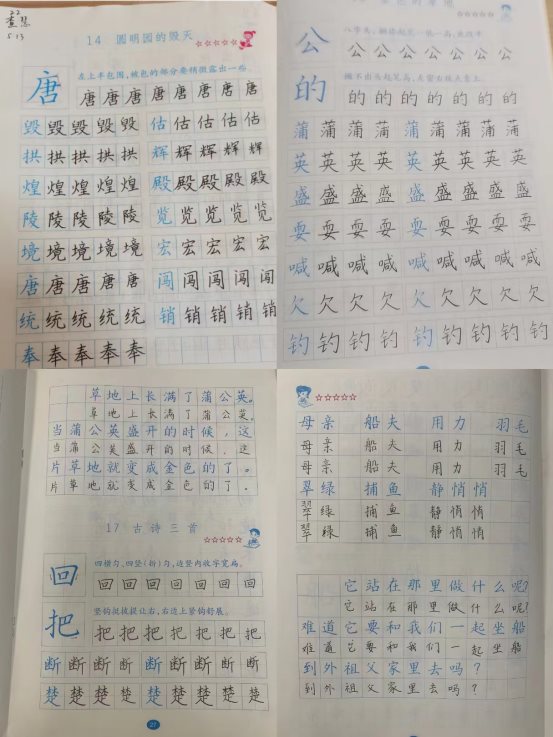 14 圆明园的毁灭
唐
左上半包围,被包的部分要稍微露出一些。
唐 唐 唐 唐 唐 唐 唐
毁 毁 毁 毁 毁 估 估 估 估 估
拱 拱 拱 拱 拱 辉 辉 辉 辉 辉
煌 煌 煌 煌 煌 殿 殿 殿 殿 殿
陵 陵 陵 陵 陵 览 览 览 览 览
境 境 境 境 境 宏 宏 宏 宏 宏
唐 唐 唐 唐 唐 闯 闯 闯 闯 闯
统 统 统 统 统 销 销 销 销 销
奉 奉 奉 奉 奉
公
公 公 公 公 公 公 公
的
的 的 的 的 的 的 的
蒲 蒲 蒲 蒲 蒲 蒲 蒲 蒲
英 英 英 英 英 英 英 英
盛 盛 盛 盛 盛 盛 盛 盛
耍 耍 耍 耍 耍 耍 耍 耍
喊 喊 喊 喊 喊 喊 喊 喊
欠 欠 欠 欠 欠 欠 欠 欠
钓 钓 钓 钓 钓 钓 钓 钓
草地上长满了蒲公英。
草地上长满了蒲公英。
当蒲公英盛开的时候,这
当蒲公英盛开的时候,这
片草地就变成金色的了。
片草地就变成金色的了。
17 古诗三首
回
四横匀,四竖(折)匀,边竖内收字宽扁。
回 回 回 回 回 回 回
把
竖钩挺拔提让右,右边上紧钩舒展。
把 把 把 把 把 把 把
断 断 断 断 断 断 断 断
楚 楚 楚 楚 楚 楚 楚 楚
27
母亲 船夫 用力 羽毛
母亲 船夫 用力 羽毛
母亲 船夫 用力 羽毛
翠绿 捕鱼 静悄悄
翠绿 捕鱼 静悄悄
翠绿 捕鱼 静悄悄
它站在那里做什么呢?
它站在那里做什么呢?
难道它要和我们一起坐船
难道它要和我们一起坐船
到外祖父家里去吗?
到外祖父家里去吗?